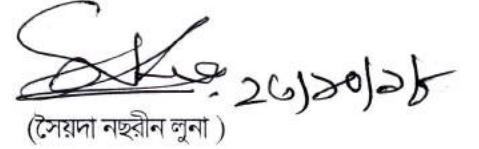 ২৩/১০/১৮
(সৈয়দা নছরীন লুনা )